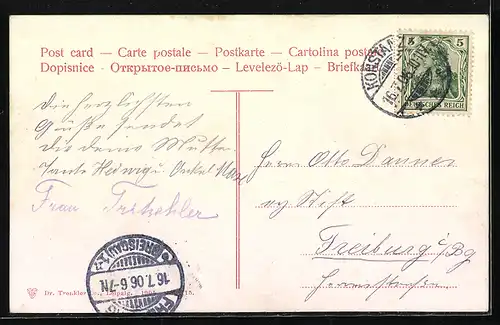 Post card – Carte postale – Postkarte – Cartolina postale
Dopisnice – Открытое-письмо – Levelező-Lap – Briefka
KONSTA
16.7.06
5 5
DEUTSCHES REICH
die herzlichsten
Grüße sendet
dir deine Mutter
Tante Hedwig u. Onkel Max
Frau
Herrn Otto Danner
Freiburg i/Bg
FREIBURG (BREISGAU)
16.7.06.6-7N
Dr. Trenkler Co., Leipzig. 1905